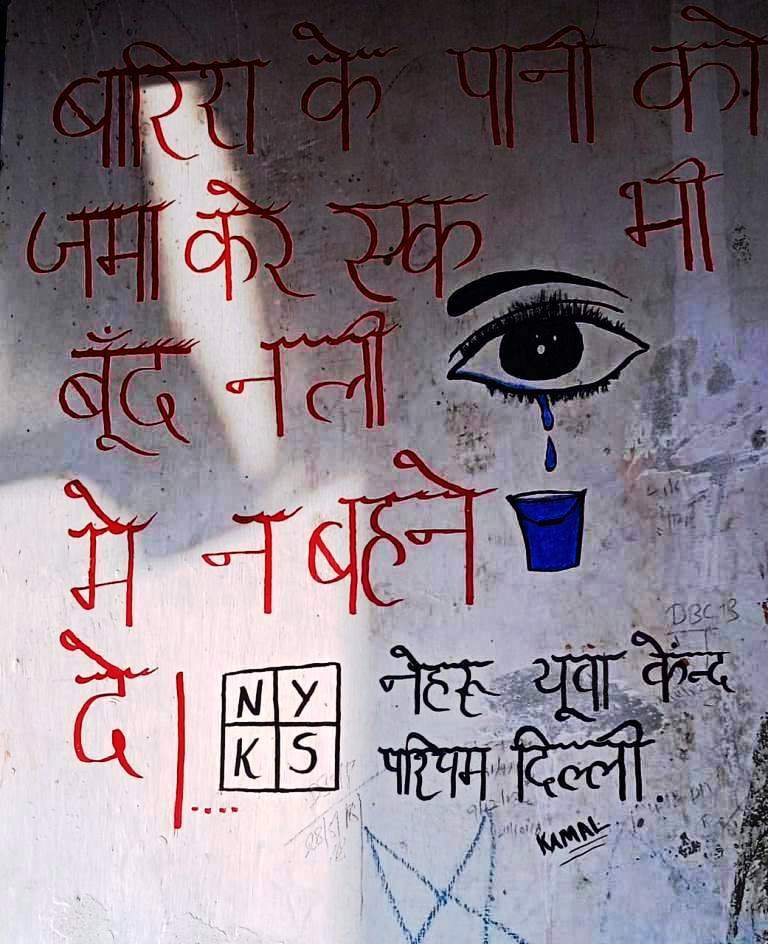 बारिश के पानी को
जमा करे एक भी
बूँद नली
मे न बहने
दे|
N Y
K S
नेहरू यूवा केंन्द
पश्चिम दिल्ली
KAMAL
DBC 13